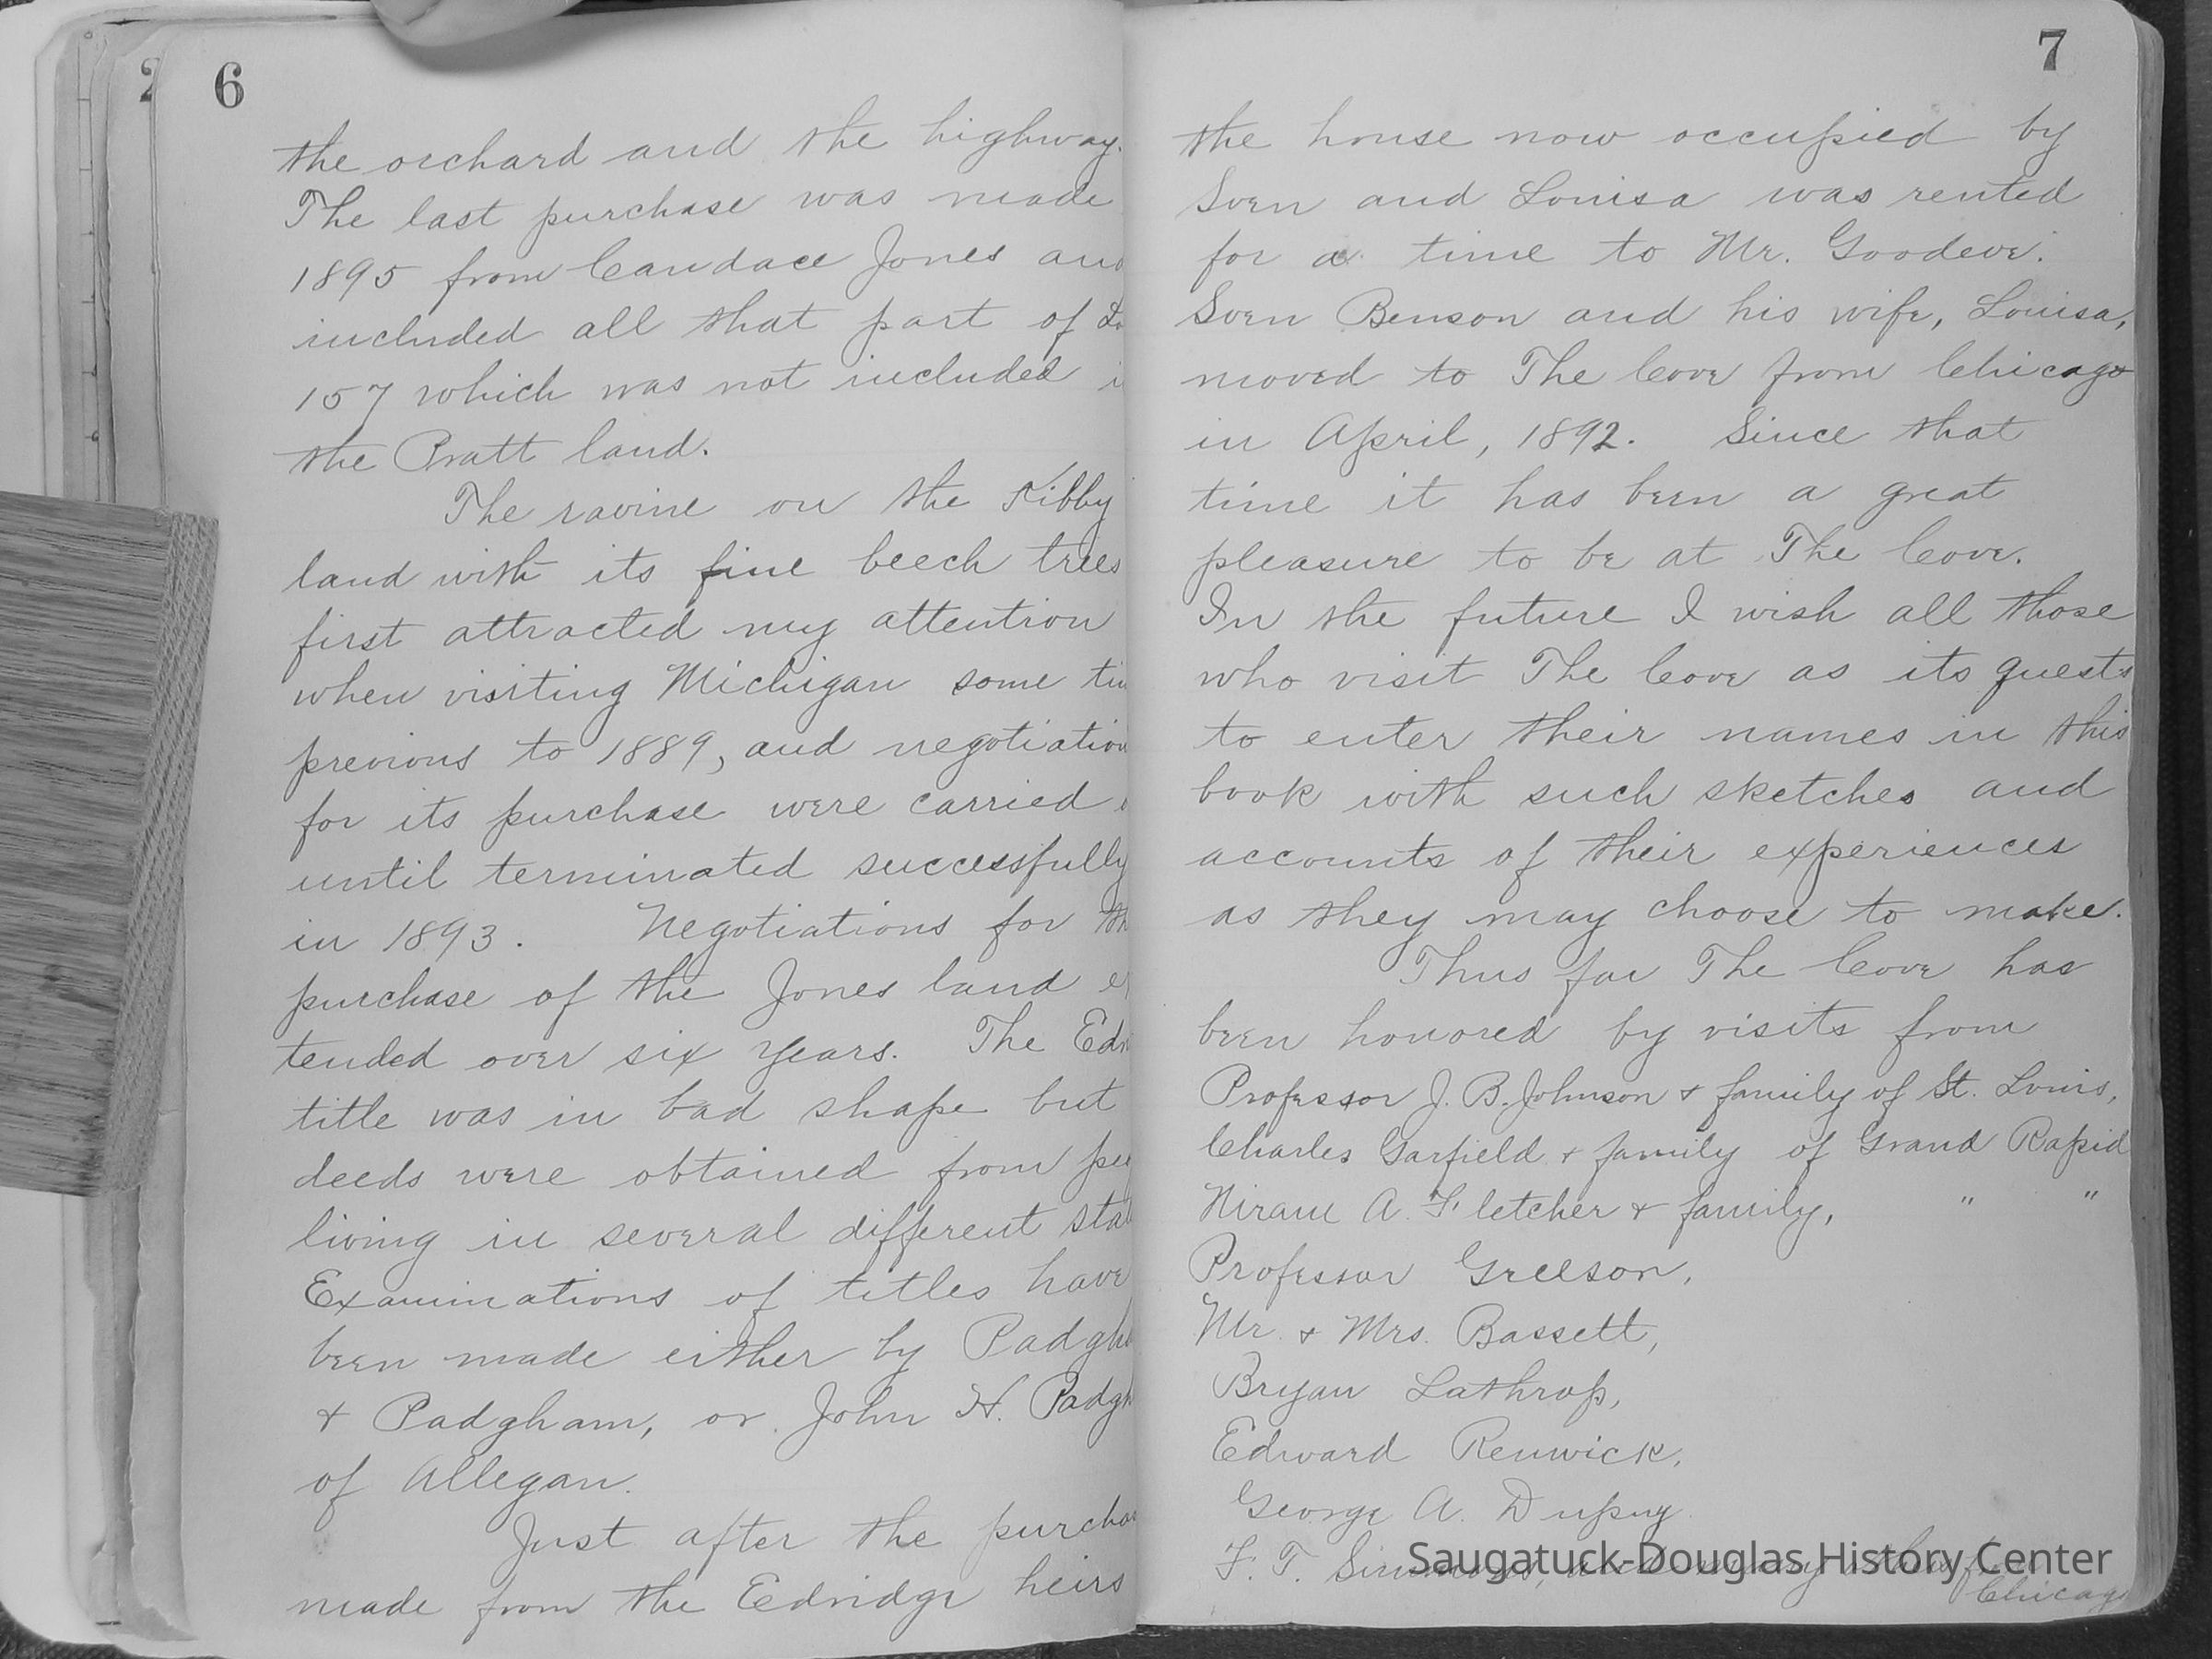 6
the orchard and the highway.
The last purchase was made
1895 from Candace Jones and
included all that part of Lo
157 which was not included i
the Pratt land.
The ravine on the Kibby
land with its fine beech trees
first attracted my attention
when visiting Michigan some tim
previous to 1889, and negotiation
for its purchase were carried
until terminated successfully
in 1893. Negotiations for th
purchase of the Jones land e
tended over six years. The Edr
title was in bad shape but
deeds were obtained from pe
living in several different sta
Examinations of titles have
been made either by Padgh
& Padgham, or John H. Padgh
of Allegan.
Just after the purchas
made from the Edridge heirs
7
the house now occupied by
Soen and Louisa was rented
for a time to Mr. Goodeve.
Soen Benson and his wife, Louisa,
moved to The Cove from Chicago
in April, 1892. Since that
time it has been a great
pleasure to be at The Cove.
In the future I wish all those
who visit The Cove as its guests
to enter their names in this
book with such sketches and
accounts of their experiences
as they may choose to make.
Thus far The Cove has
been honored by visits from
Professor J. B. Johnson & family of St. Louis,
Charles Garfield & family of Grand Rapid
Hiram A. Fletcher & family, " "
Professor Greeson,
Mr. & Mrs. Bassett,
Bryan Lathrop,
Edward Renwick,
George A. Dupuy
F. T. Simmons, and many others from
Chicago
Saugatuck-Douglas History Center